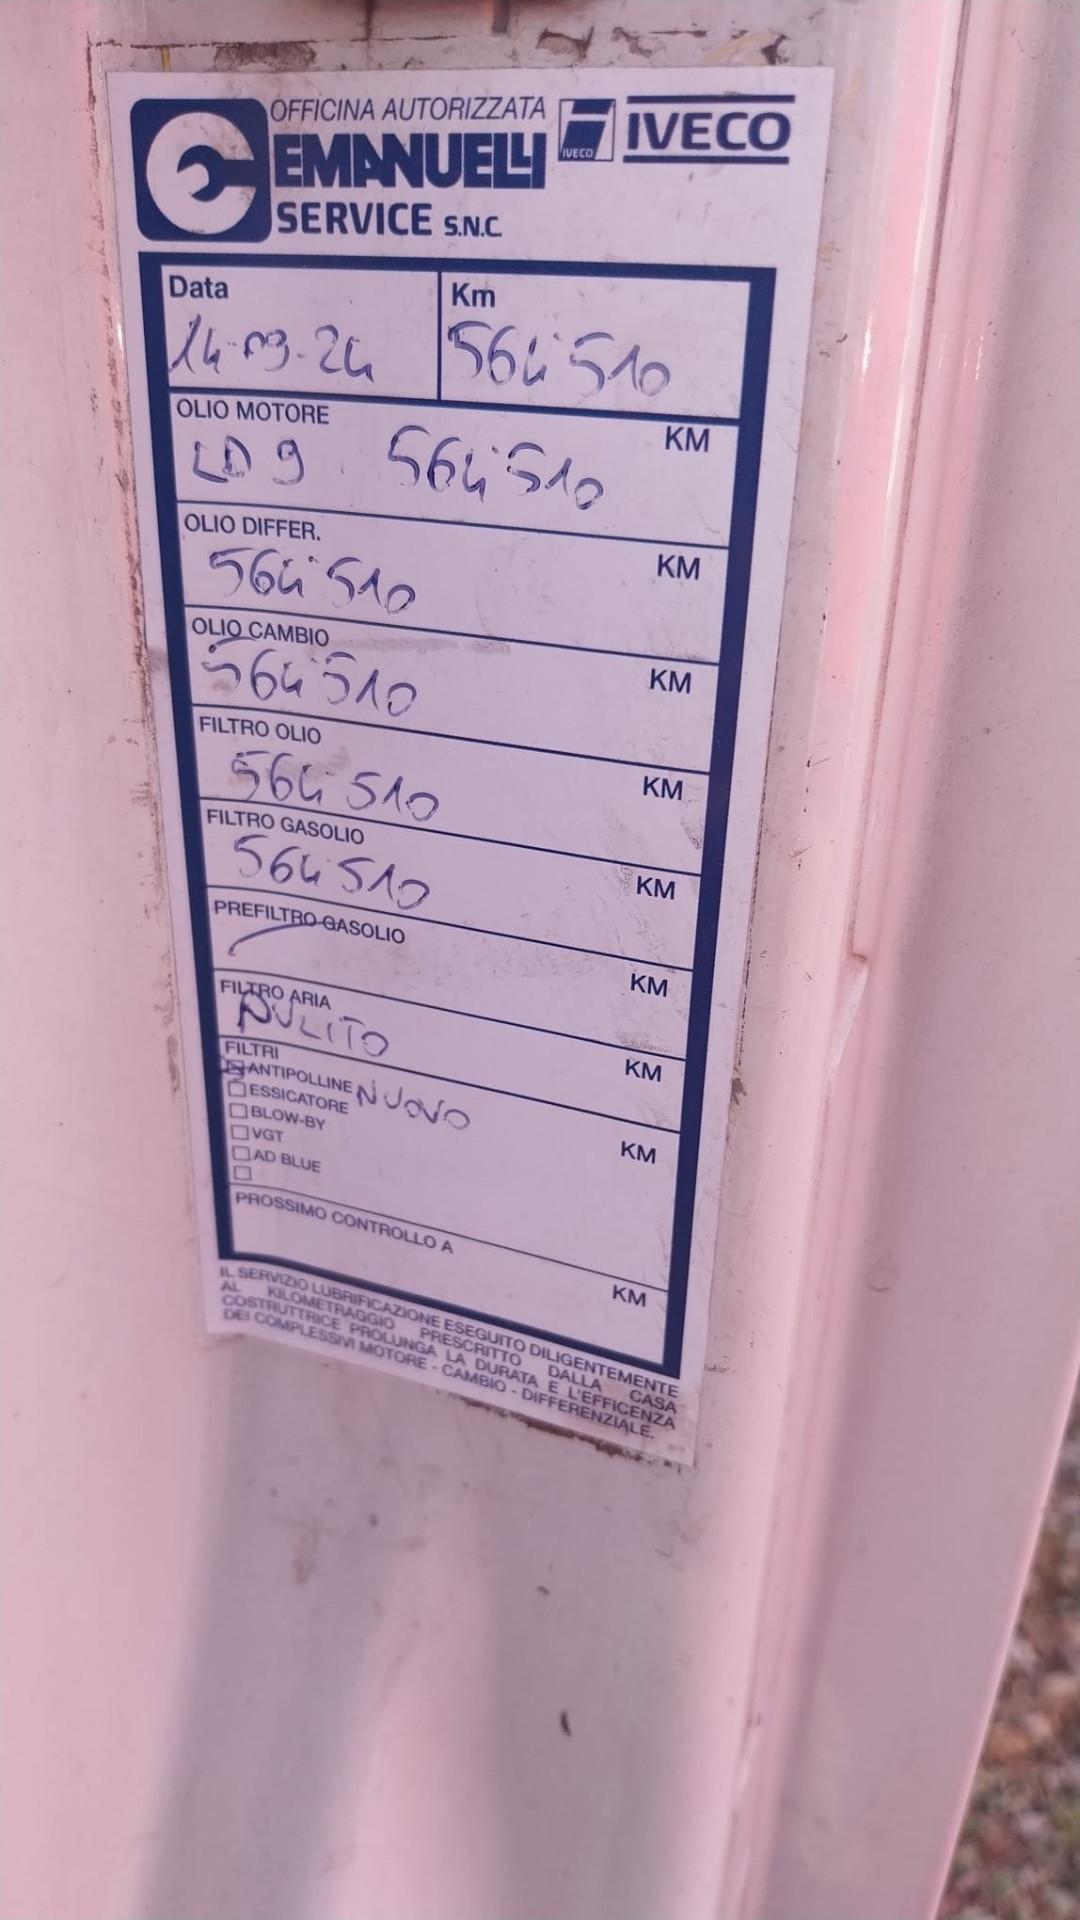 OFFICINA AUTORIZZATA
EMANUELLI
SERVICE S.N.C.
IVECO
IVECO
Data
14-09-24
Km
564'510
OLIO MOTORE KM
LD 9 564'510
OLIO DIFFER. KM
564'510
OLIO CAMBIO KM
564'510
FILTRO OLIO KM
564'510
FILTRO GASOLIO KM
564'510
PREFILTRO GASOLIO KM
FILTRO ARIA KM
PULITO
FILTRI KM
ANTIPOLLINE NUOVO
ESSICATORE
BLOW-BY
VGT
AD BLUE
PROSSIMO CONTROLLO A KM
IL SERVIZIO LUBRIFICAZIONE ESEGUITO DILIGENTEMENTE
AL KILOMETRAGGIO PRESCRITTO DALLA CASA
COSTRUTTRICE PROLUNGA LA DURATA E L'EFFICENZA
DEI COMPLESSIVI MOTORE - CAMBIO - DIFFERENZIALE.